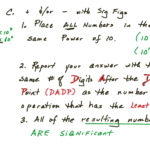 C. + &/or - with Sig Figs
1. Place ALL Numbers in the
same Power of 10. (10
(10
2. Report your answer with t
same # of Digits After the D
Point (DADP) as the number
operation that has the Least
3. All of the resulting numbe
ARE SIGNIFICANT